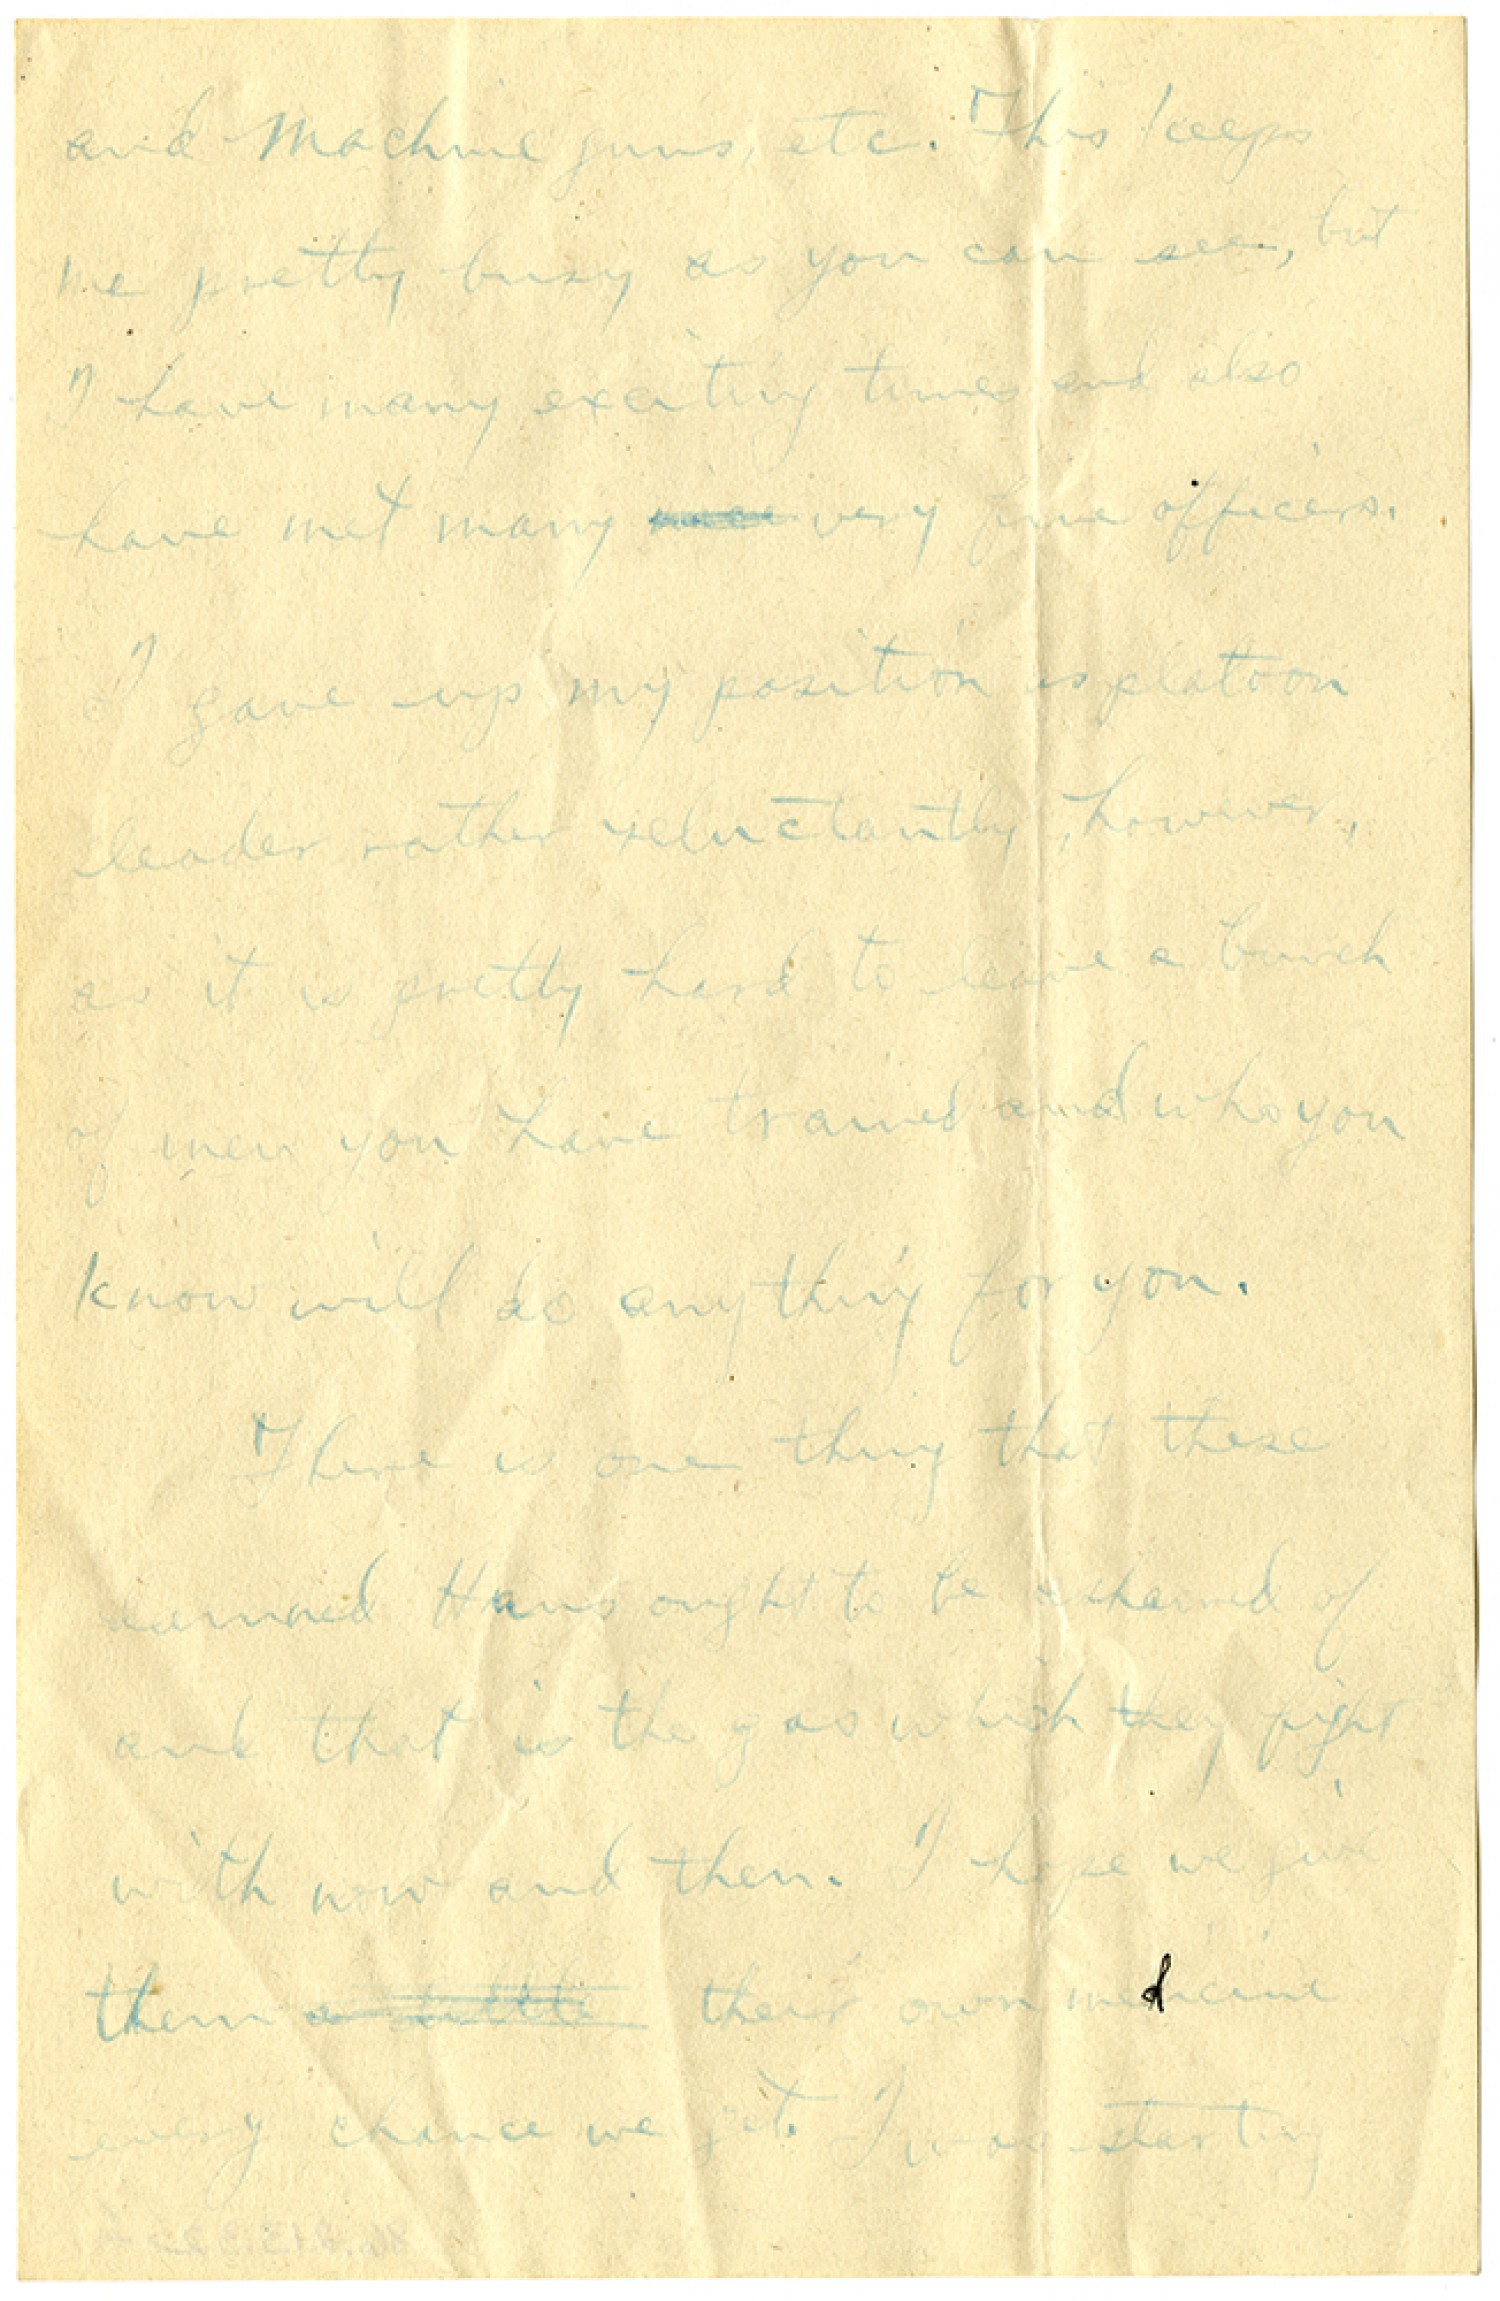 and Machine guns, etc. This keeps
me pretty busy as you can see, but
I have many exciting times and also
have met many very fine officers.
I gave up my position as platoon
leader rather reluctantly, however,
as it is pretty hard to leave a bunch
of men you have trained and who you
know will do anything for you.
There is one thing that these
damned Huns ought to be ashamed of
and that is the gas which they fight
with now and then. I hope we give
them a little their own medicine
every chance we get. I was starting